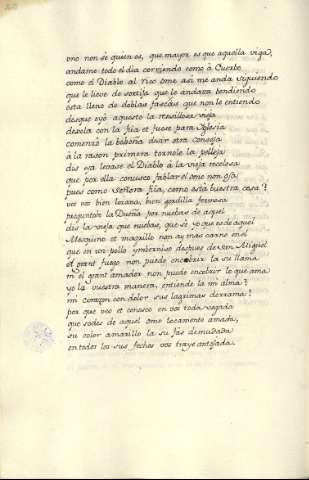 uno non sé quien es, que mayor es que aquella viga,
andame todo el dia corriendo como á Cuesto
como el Diablo al rico ome asi me anda siguiendo
que le lieve de sortija que le andava bendiendo
esta lleno de doblas fascas que non le entiendo
desque oyó aquesto la renillosa vieja
dexola con la fija et fuese para Iglesia
comenzó la bohona dear otra conseja
á la rason primera tornole la pelleja
dis ya levase el Diablo á la vieja recelosa
que por ella conusco fablar el ome non osa
pues como Señora fija, como está buestra cosa?
veo vos bien lozana, bien gordilla fermosa
preguntole la Dueña por nuebas de aquel
dis la vieja que nuebas, que sé yo que es de aquel
Mesquino et magrillo non ay mas carne en él
que en un pollo ymbernizo despues de San Miguel
el grant fuego non puede encobrir la su llama
ni el grant amador non puede encobrir lo que ama
ya la vuestra manera, entiende la mi alma?
mi corazon con dolor sus lagrimas derrama?
por que veo et conosco en vos toda vegada
que sodes de aquel ome locamente amada,
su color amarillo la su fas demudada
en todos los sus fechos vos traye antojada.